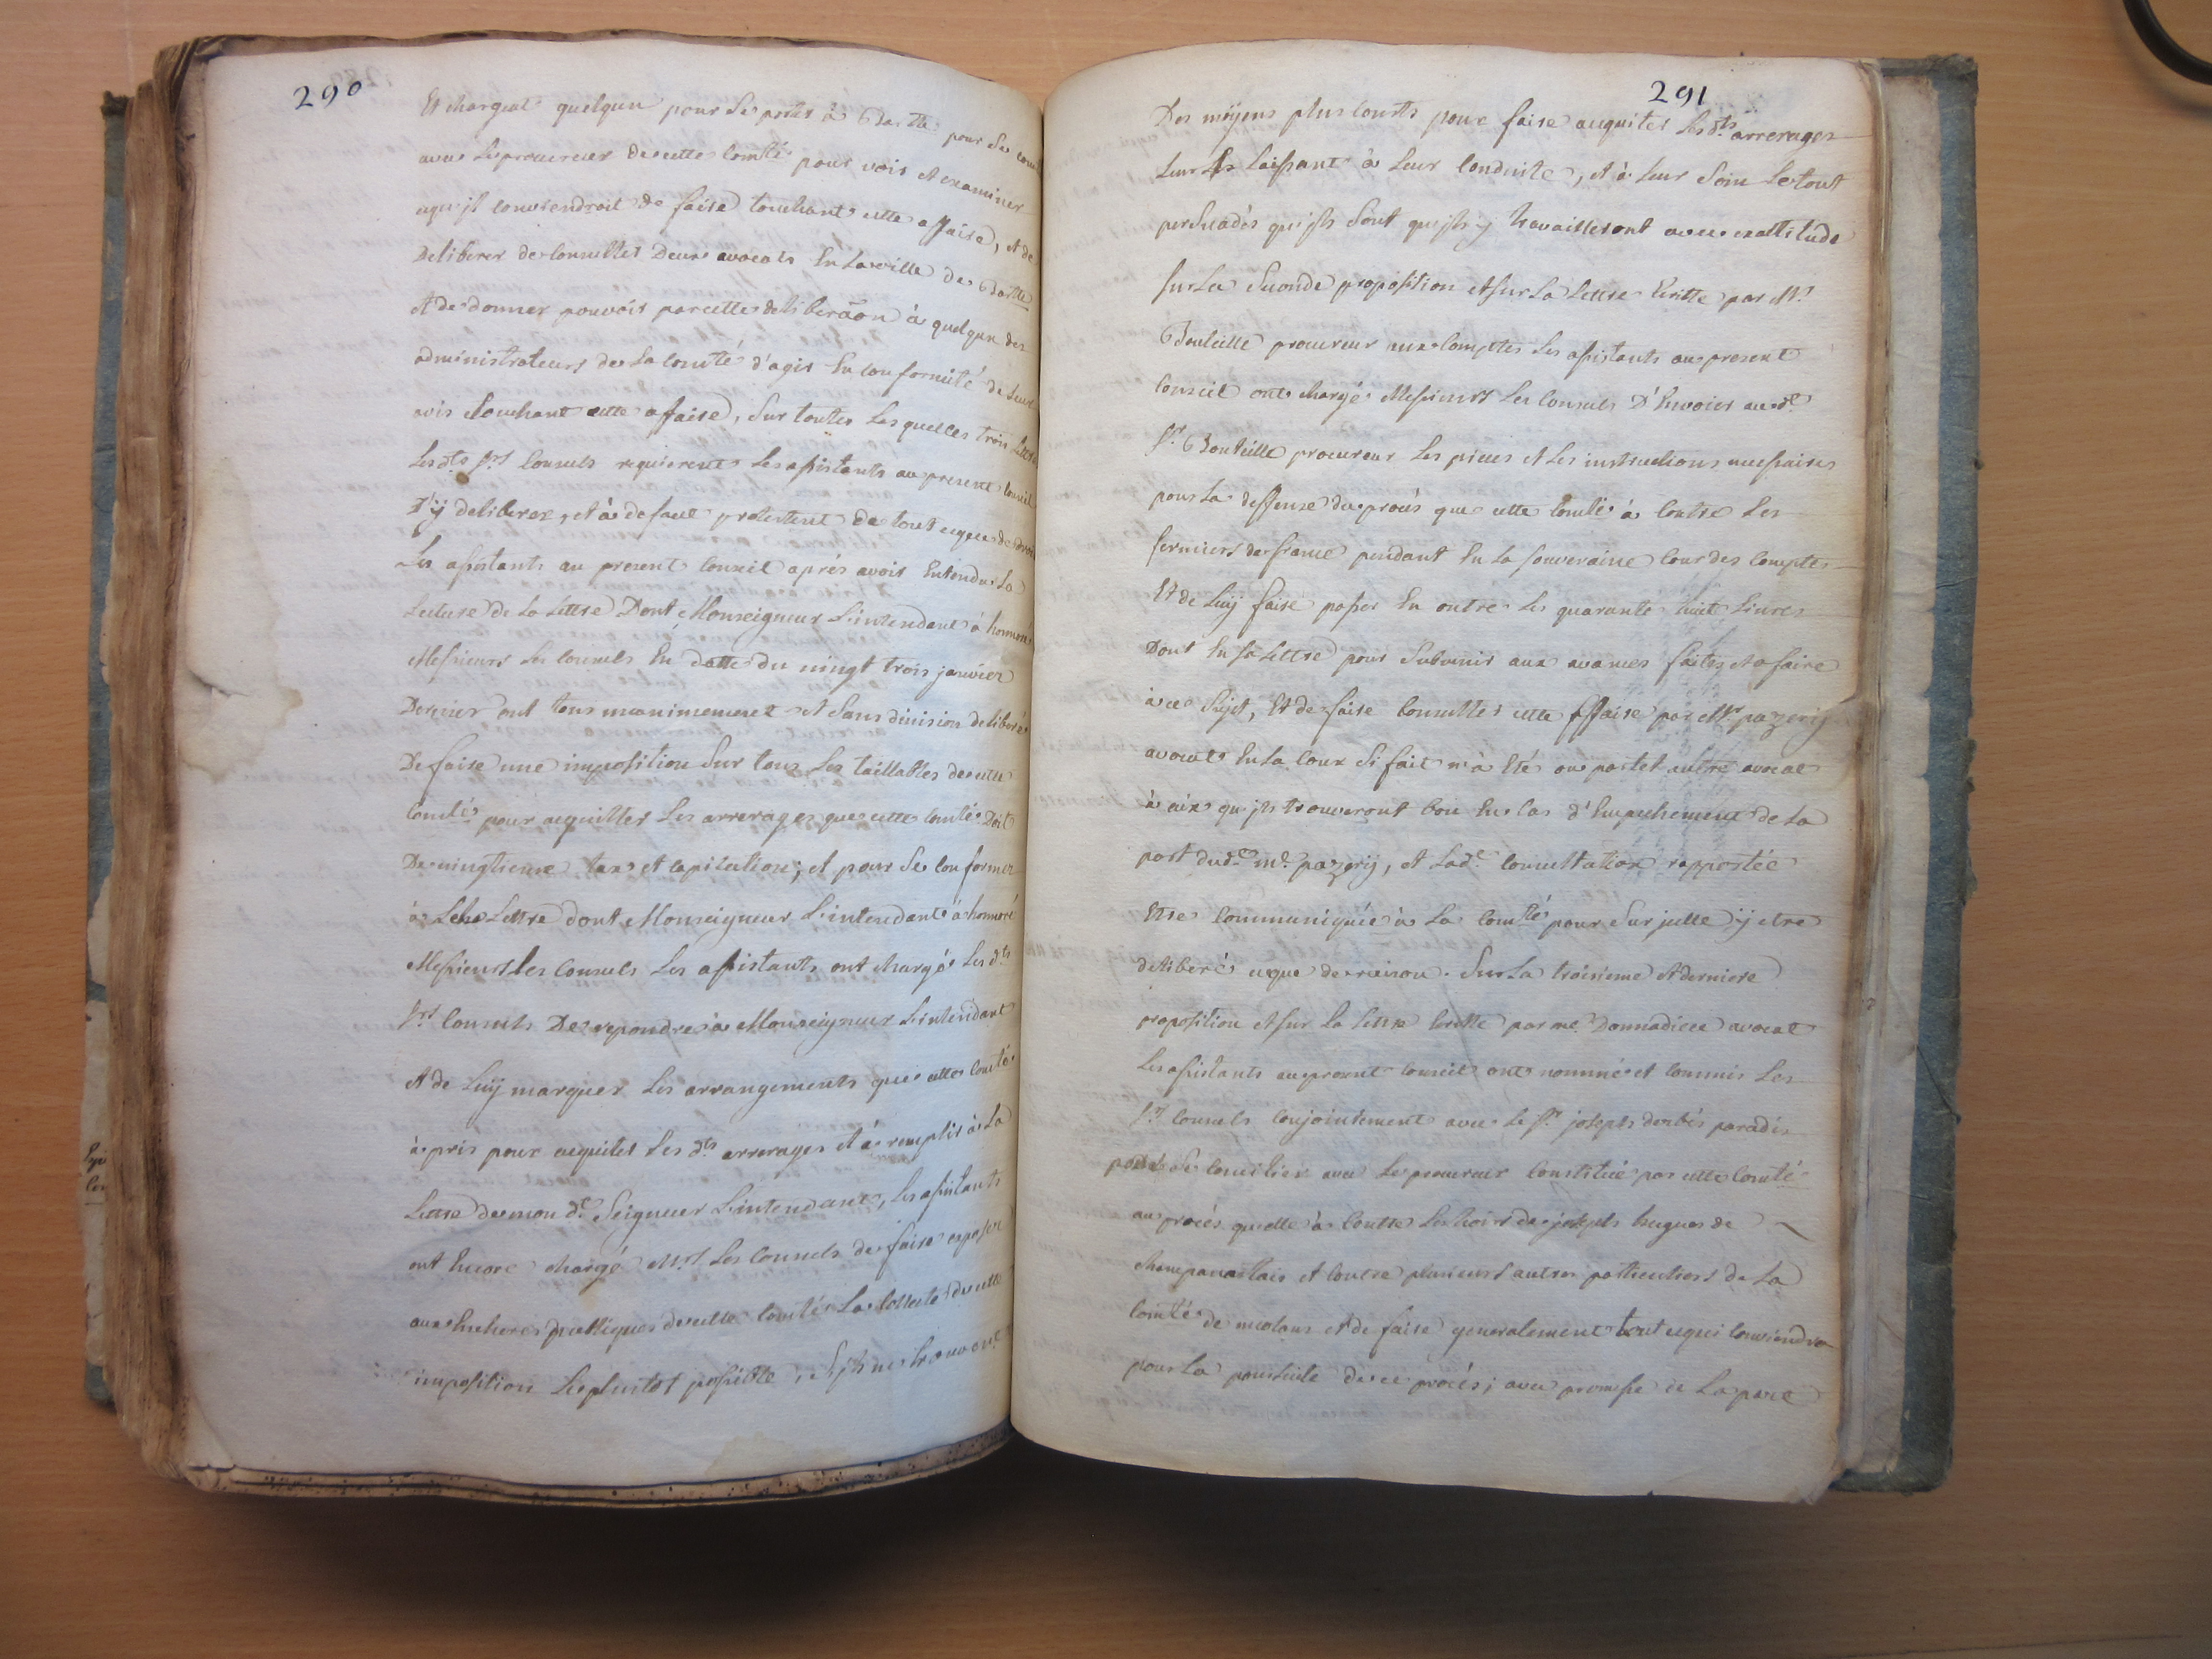 290
Et chargeat quelqun pour se porter à Barlle pour se con
avec le procureur de cette com̃té pour voir et examiner
cequ'il conviendroit de faire touchant cette affaire, et de
Deliberer de consulter Deux avocats En la ville de Barlle
et de donner pouvoir par cette deliberãon à quelqun des
administrateurs de la com̃té d'agir En conformité de leur
avis touchant cette afaire, sur toutes lesquelles trois lettres
les dts srs Consuls requierent les assistants au present Conseil
D'ÿ deliberer, et à defaut protestent de tout ceque de droit
Les assistants au present Conseil aprés avoir Entendu la
lecture de la lettre Dont Monseigneur L'intendant à honnoré
Messieurs les Consuls En datte du vingt trois janvier
Dernier ont tous unanimement et sans division deliberé
De faire une imposition sur tous les taillables de cette
Com̃té pour acquitter les arrerages que cette com̃té Doit
De vingtieme taxe et capitation; et pour se conformer
à la Lettre dont Monseigneur L'intendant à honnoré
Messieurs les Consuls les assistants ont chargé les dts
srs Consuls De repondre à Monseigneur L'intendant
et de luÿ marquer les arrangements que cette Com̃té
à pris pour acquiter les dts arrerages et à remplir à la
lettre de mon dt Seigneur L'intendant, les assistants
ont Encore chargé Mrs les Consuls de faire exposer
aux Encheres publiques de cette com̃té la collecte de cette
imposition le plustot possible, s'ils ne trouvent
291
Des moÿens plus courts pour faire acquiter les dts arrerages
leur les laissant à leur Conduite, et à leur soin le tout
persuadés qu'ils sont qu'ils y travailleront avec exattitude
sur la seconde proposition et sur la lettre Ecritte par Mr
Bouteille procureur aux Comptes les assistants au present
Conseil ont chargé Messieurs les Consuls D'Envoier au dt
sr Bouteille procureur les pieces et les instructions necessaires
pour la deffense du procés que cette Com̃té à contre les
fermiers de france pendant En la souveraine Cour des Comptes
Et de luÿ faire passer En outre les quarante huit livres
Dont En sa lettre pour subvenir aux avances faites et a faire
à ce sujet, Et de faire consulter cette affaire par Mr pazerÿ
avocat En la Cour si fait n'à Eté ou par tel autre avocat
à aix qu'ils trouveront bon En cas d'Empechement de la
part dud. me pazerÿ, et lade. consultation rapportée
Etre Communiquée à la com̃té pour sur icelle ÿ etre
deliberé ceque de raison. Sur la troisieme et derniere
proposition et sur la lettre Ecritte par me Donnadieu avocat
les assistants au present Conseil ont nommé et commis les
srs Consuls conjointement avec le sr joseph derbés paradis
pour se concilier avec le procureur Constitué par cette Com̃té
au procés qu'elle à contre les hoirs de joseph hugues de
champanastais et contre plusieurs autres particuliers de la
com̃té de meolans et de faire generalement tout cequi conviendra
pour la poursuite de ce procés; avec promesse de la part